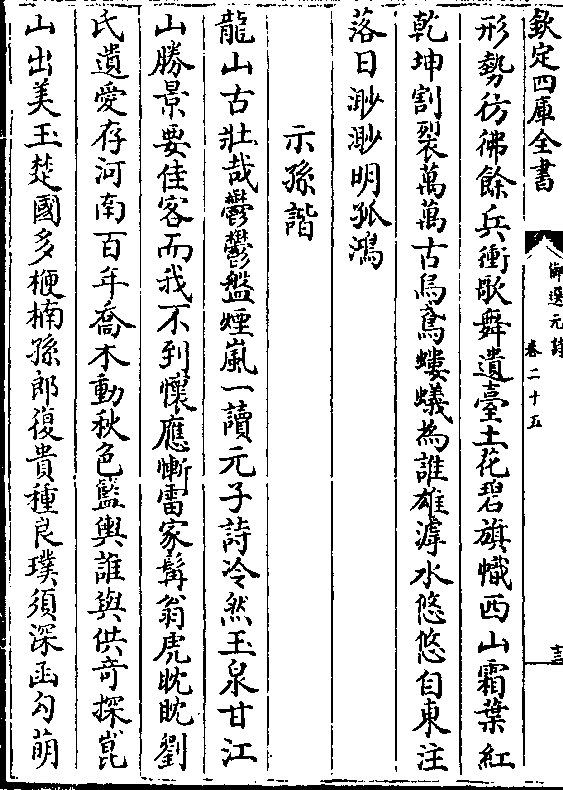 欽定四庫全書
御選元詩
卷二十五
形勢彷彿餘兵衝歌舞遺臺土花碧旗幟西山霜葉紅
乾坤割裂萬萬古烏鳶螻蟻為誰雄滹水悠悠自東注
落日渺渺明孤鴻
示孫諧
龍山古壯哉鬱鬱盤煙嵐一讀元子詩冷然玉泉甘江
山勝景要佳客而我不到懷應慚雷家髯翁虎眈眈劉
氏遺愛存河南百年喬木動秋色籃輿誰與供竒探崑
山出美玉楚國多楩楠孫郎復貴種良璞須深函勾萌